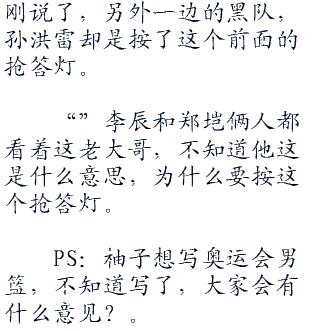 刚说了，另外一边的黑队，
孙洪雷却是按了这个前面的
抢答灯。
“” 李辰和郑垲俩人都
看着这老大哥，不知道他这
是什么意思，为什么要按这
个抢答灯。
PS：袖子想写奥运会男
篮，不知道写了，大家会有
什么意见？。